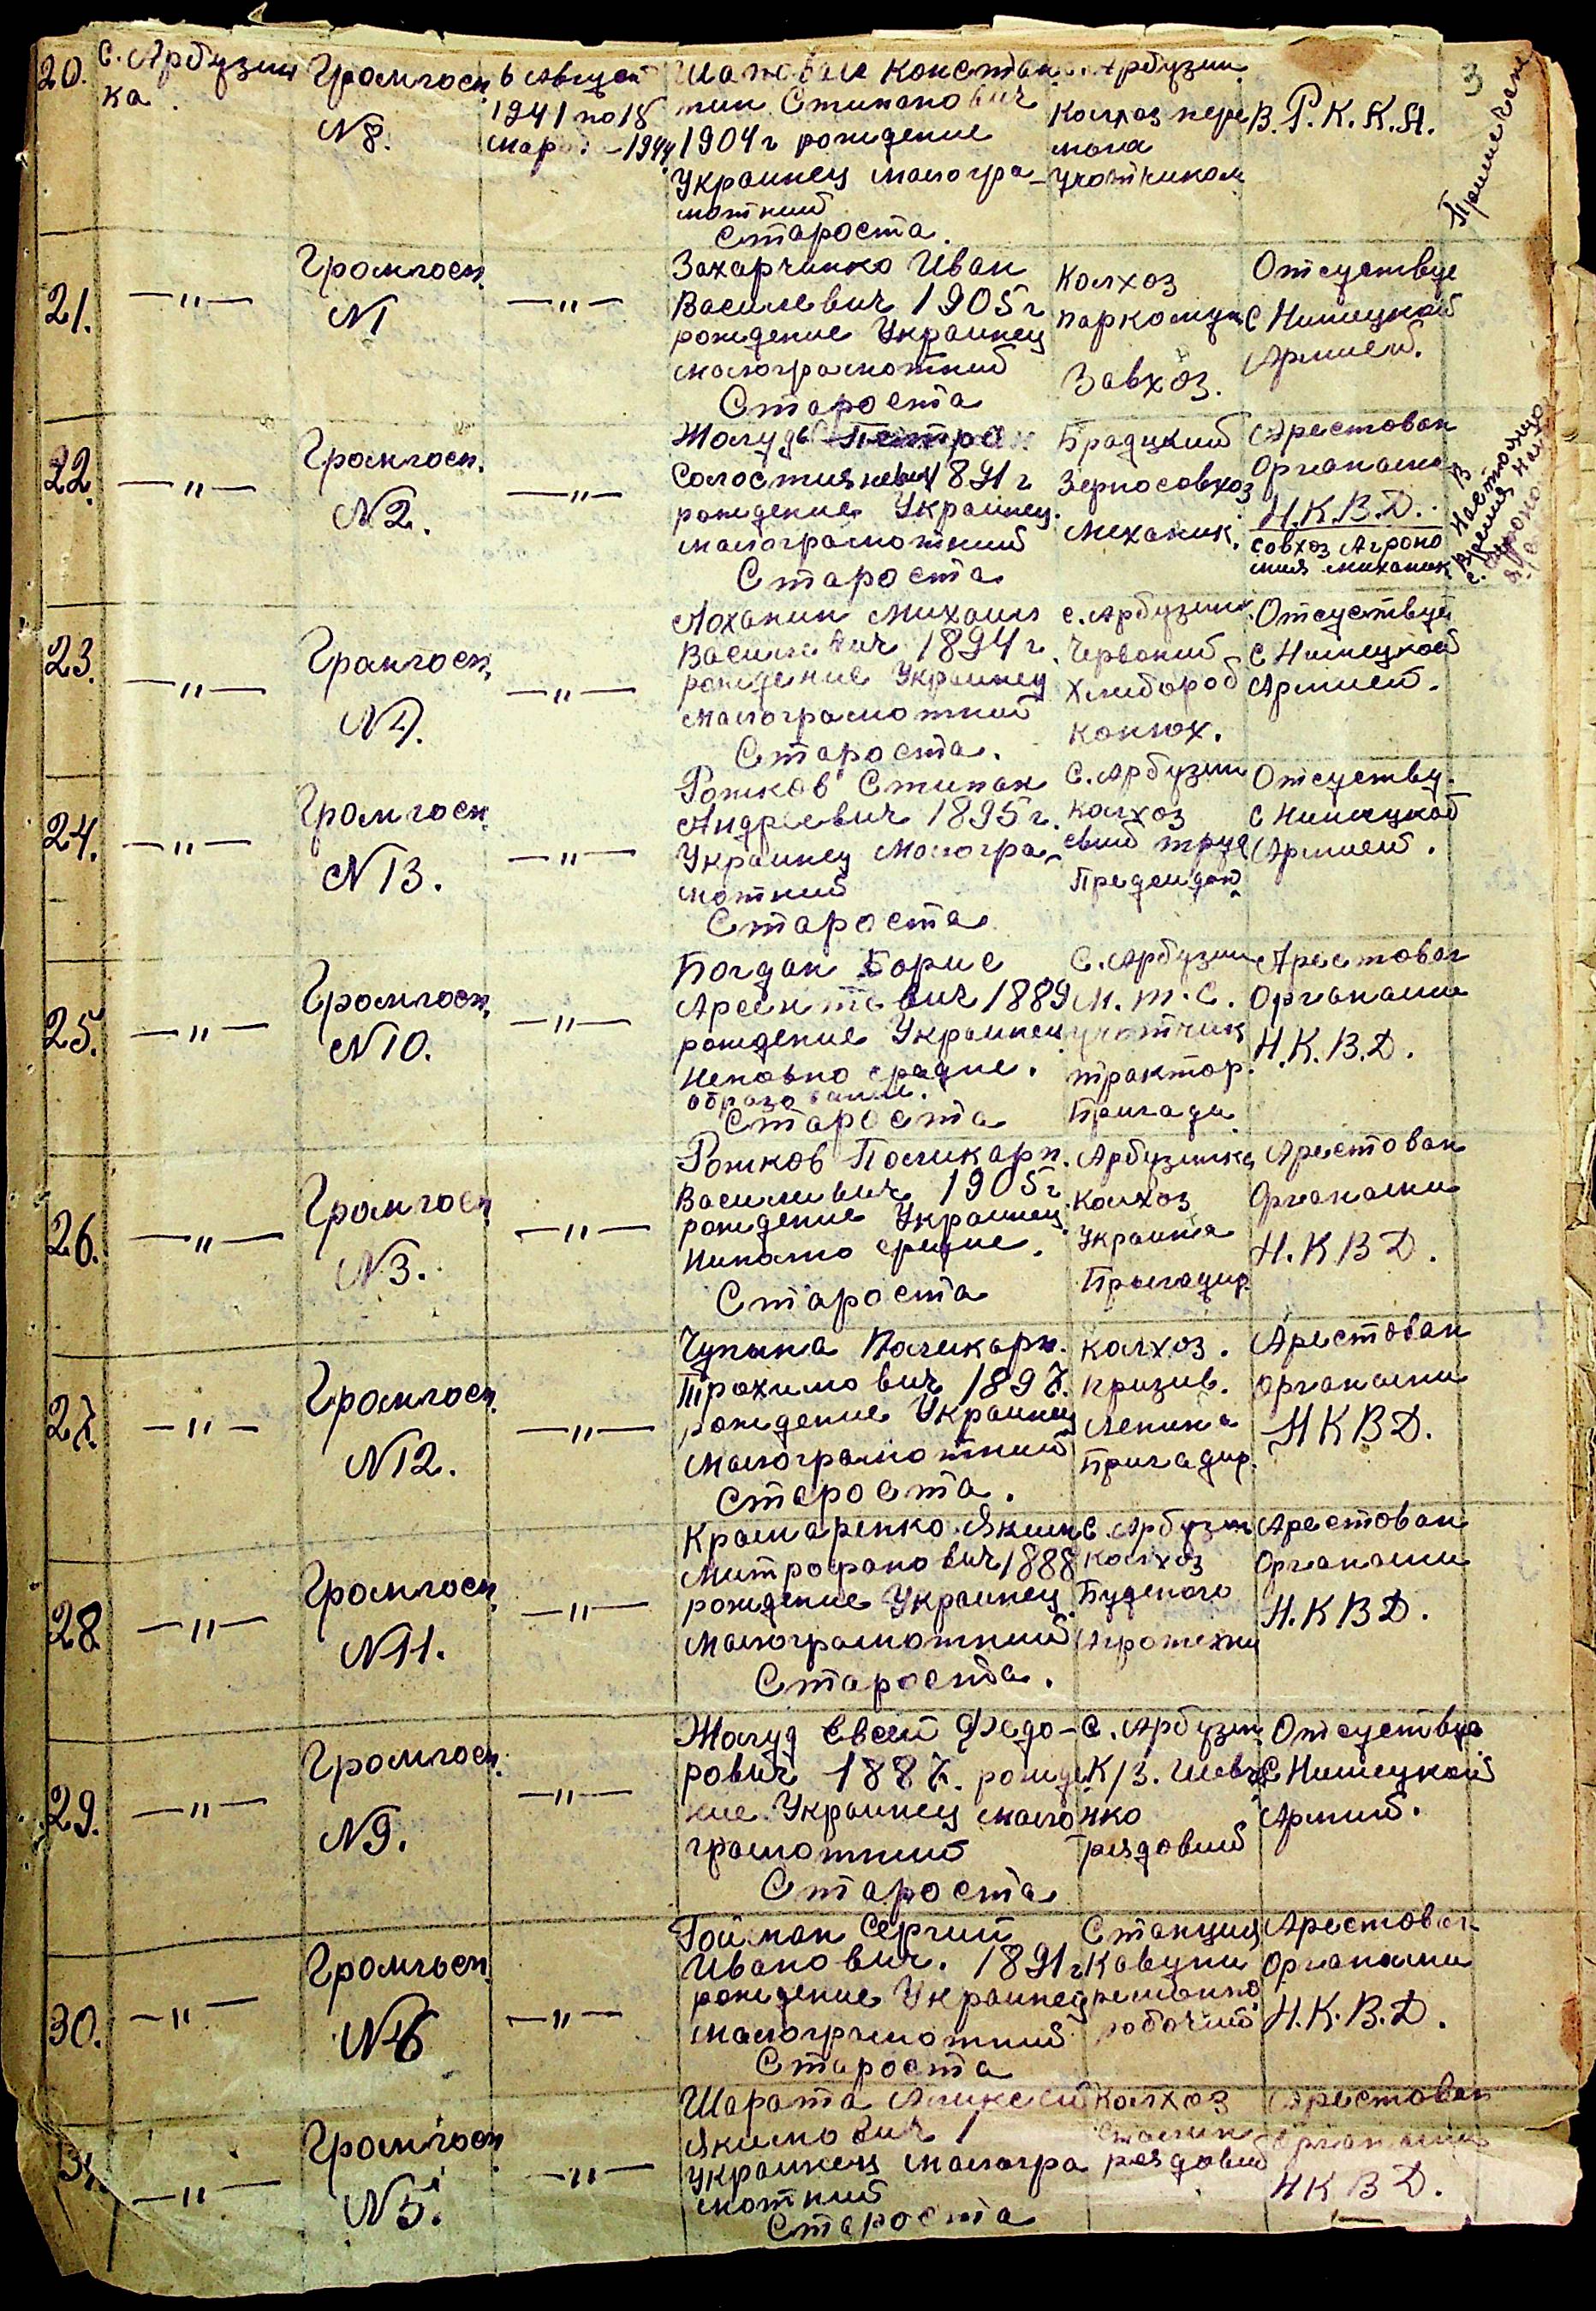 3
Примечание
20.
С. Арбузин
ка.
Громгосп.
N 8.
6 август
1941 по 18
мар – 1944
Шаповал Констан
тин Стипанович
1904 г рождение
Украинец малогра-
мотний
Староста.
Арбузин
Колхоз пере
мога
Учотником
В. Р. К. К. А.
21.
—"—
Громгосп.
N 1
—"—
Захарчинко Иван
Василевич 1905 г
рождение Украинец
малограмотний
Староста
Колхоз
Паркомун
Завхоз.
Отсуствуе
с Нимецкой
Армией.
22.
—"—
Громгосп.
N 2.
—"—
Жолудь Петро
1891 г
рождение Украинец.
малограмотний
Староста
Брадцкий
Зерносовхоз
Механик.
Арестован
Органами
Н. К. В. Д.
совхоз Агроно
мия миханик
В
Настоящо
Время
23.
—"—
Громгосп.
N 4.
—"—
Лоханин Михаил
Василевич 1894 г.
рождение Украинец
малограмотний
Староста.
с. Арбузин
Червоний
Хлибороб
конюх.
Отсуствуе
с Нимецкой
Армией.
24.
—"—
Громгосп.
N 13.
—"—
Рожков Стипан
Андреевич 1895 г.
Украинец Малогра-
мотний
Староста
С. Арбузин
Колхоз
свий труд
Председат
Отсуству.
с Нимецкой
Армией.
25.
—"—
Громгосп.
N 10.
—"—
Богдан Борис
Арсентевич 1889
рождение Украинец
Неповно средне.
образование.
Староста
С. Арбузин
М. Т. С.
учотчик
трактор.
Бригади
Арестован
Органами
Н. К. В. Д.
26.
—"—
Громгосп
N 3.
—"—
Рожков Поликарп.
Василивич 1905 г
рождение Украинец.
Нипално средне.
Староста
Арбузинка
Колхоз
Украина
Бригадир
Арестован
Органами
Н. К В Д.
27.
—"—
Громгосп.
N 12.
—"—
Чупына Паликарп.
Трохимович 1897.
рождение Украинец
Малограмотний
Староста.
Колхоз.
Призив.
Ленина
Бригадир.
Арестован
Органами
Н К В Д.
28.
—"—
Громгосп.
N 11.
—"—
Крамаренко Яким
Митрофанович 1888
рождение Украинец
Малограмотний
Староста.
С. Арбузин
колхоз
Буденого
Агротехни
Арестован
Органами
Н. К В Д.
29.
—"—
Громгосп.
N 9.
—"—
Жолуд Евсей Федо-
рович 1887. рожде
ние Украинец мало
грамотний
Староста
С. Арбузин
К/З. Шевче
нко
рядовий
Отсуствуе
с Нимецкой
Армий.
30.
—"—
Громгосп.
N 6
—"—
Гойман Сергий
Иванович. 1891 г
рождение Украинец
малограмотний
Староста
Станция
Кавуни
ремонтно
робочий
Арестован
Органами
Н. К. В. Д.
31.
—"—
Громгосп
N 5.
—"—
Шарата Аликсей
Якимович 1
Украинец малогра
мотний
Староста
Колхоз
Сталин
рядовий
Арестован
Органами
Н К В Д.